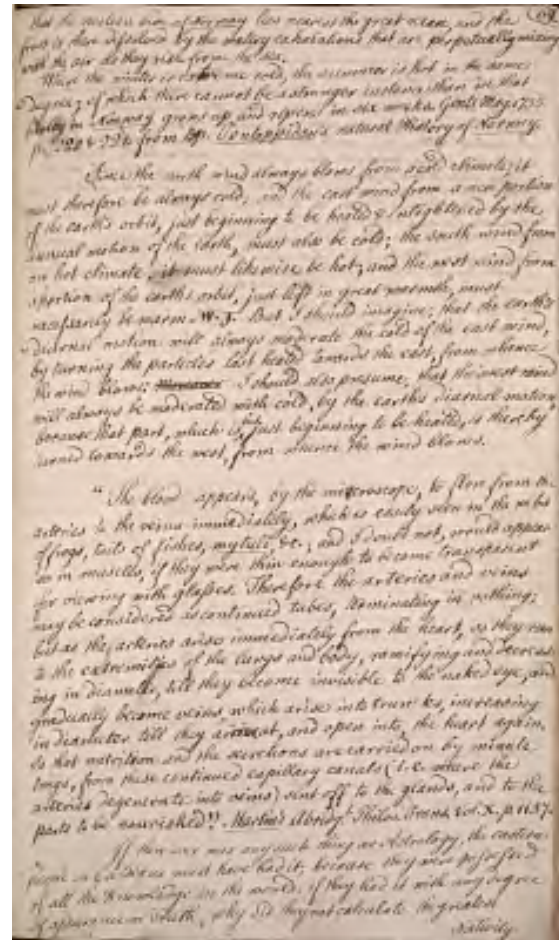 that the western side of Norway lies nearest the great ocean, and the
frost is there dissolved by the watery exhalations that are perpetually mixing
with the air as they rise from the sea.
Where the winter is extreme cold, the summer is hot in the same
Degree; of which there cannot be a stronger instance than in that
Barley in Norway grows up and ripens in six weeks. Gent's Mag. 1755.
p. from Bp. Pontoppidan's natural History of Norway.
Since the north wind always blows from a cold climate; it
must therefore be always cold; and the east wind from a new portion
of the earth's orbit, just beginning to be heated & enlightened by the
annual motion of the Earth, must also be cold; the south wind from
an hot climate, it must likewise be hot; and the west wind from
a portion of the earth's orbit, just left in great warmth, must
necessarily be warm. But I should imagine; that the earth's
diurnal motion will always moderate the cold of the east wind,
by turning the particles last heated towards the east, from whence
the wind blows; I should also presume, that the west wind
will always be moderated with cold, by the earth's diurnal motion
because that part, which is but just beginning to be heated, is thereby
turned towards the west, from whence the wind blows.
"The blood appears, by the microscope, to flow from the
arteries to the veins immediately, which is easily seen in the webs
of frogs, tails of fishes, &c., and I doubt not, would appear
so in muscles, if they were thin enough to become transparent
for viewing with glasses. Therefore the arteries and veins
may be considered as continued tubes, terminating in nothing;
but as the arteries arise immediately from the heart, as they run
to the extremities of the lungs and body, ramifying and decreas
ing in diameter, till they become invisible to the naked eye, and
gradually become veins which arise into trunks, increasing
in diameter till they arrive at, and open into, the heart again.
So that nutrition and the secretions are carried on by minute
tubes, from these continued capillary canals (i.e. where the
arteries degenerate into veins) sent off to the glands, and to the
parts to be nourished". Martin's Abridgt. Philos. Trans. Vol. X. p.
If there ever was any such thing as Astrology, the eastern
must have had it; because they were possessed
of all the Knowledge in the world. if they had it with any degree
of or truth, why did they not calculate the greatest
Nativity